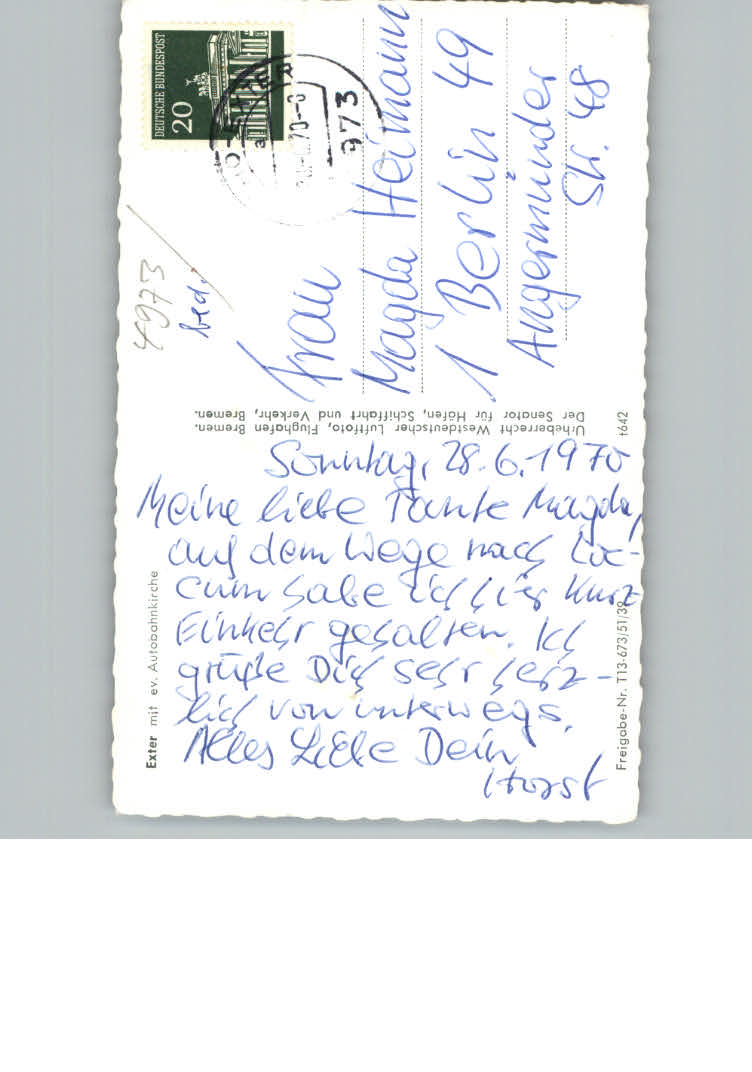 Sonntag, 28.6.1970
Meine liebe Tante Magda,
auf dem Wege nach Loc-
cum habe ich hier kurz
Einkehr gehalten. Ich
grüße Dich sehr herz-
lich von unterwegs.
Alles Liebe Dein
Horst
Exter mit ev. Autobahnkirche
Freigabe-Nr. T13-673/51/39
Urheberrecht Westdeutscher Luftfoto, Flughafen Bremen.
Der Senator für Häfen, Schiffahrt und Verkehr, Bremen.
t642
4973
bed.
DEUTSCHE BUNDESPOST
20
973
Frau
Magda Heimann
1 Berlin 49
Angermünder
Str. 48